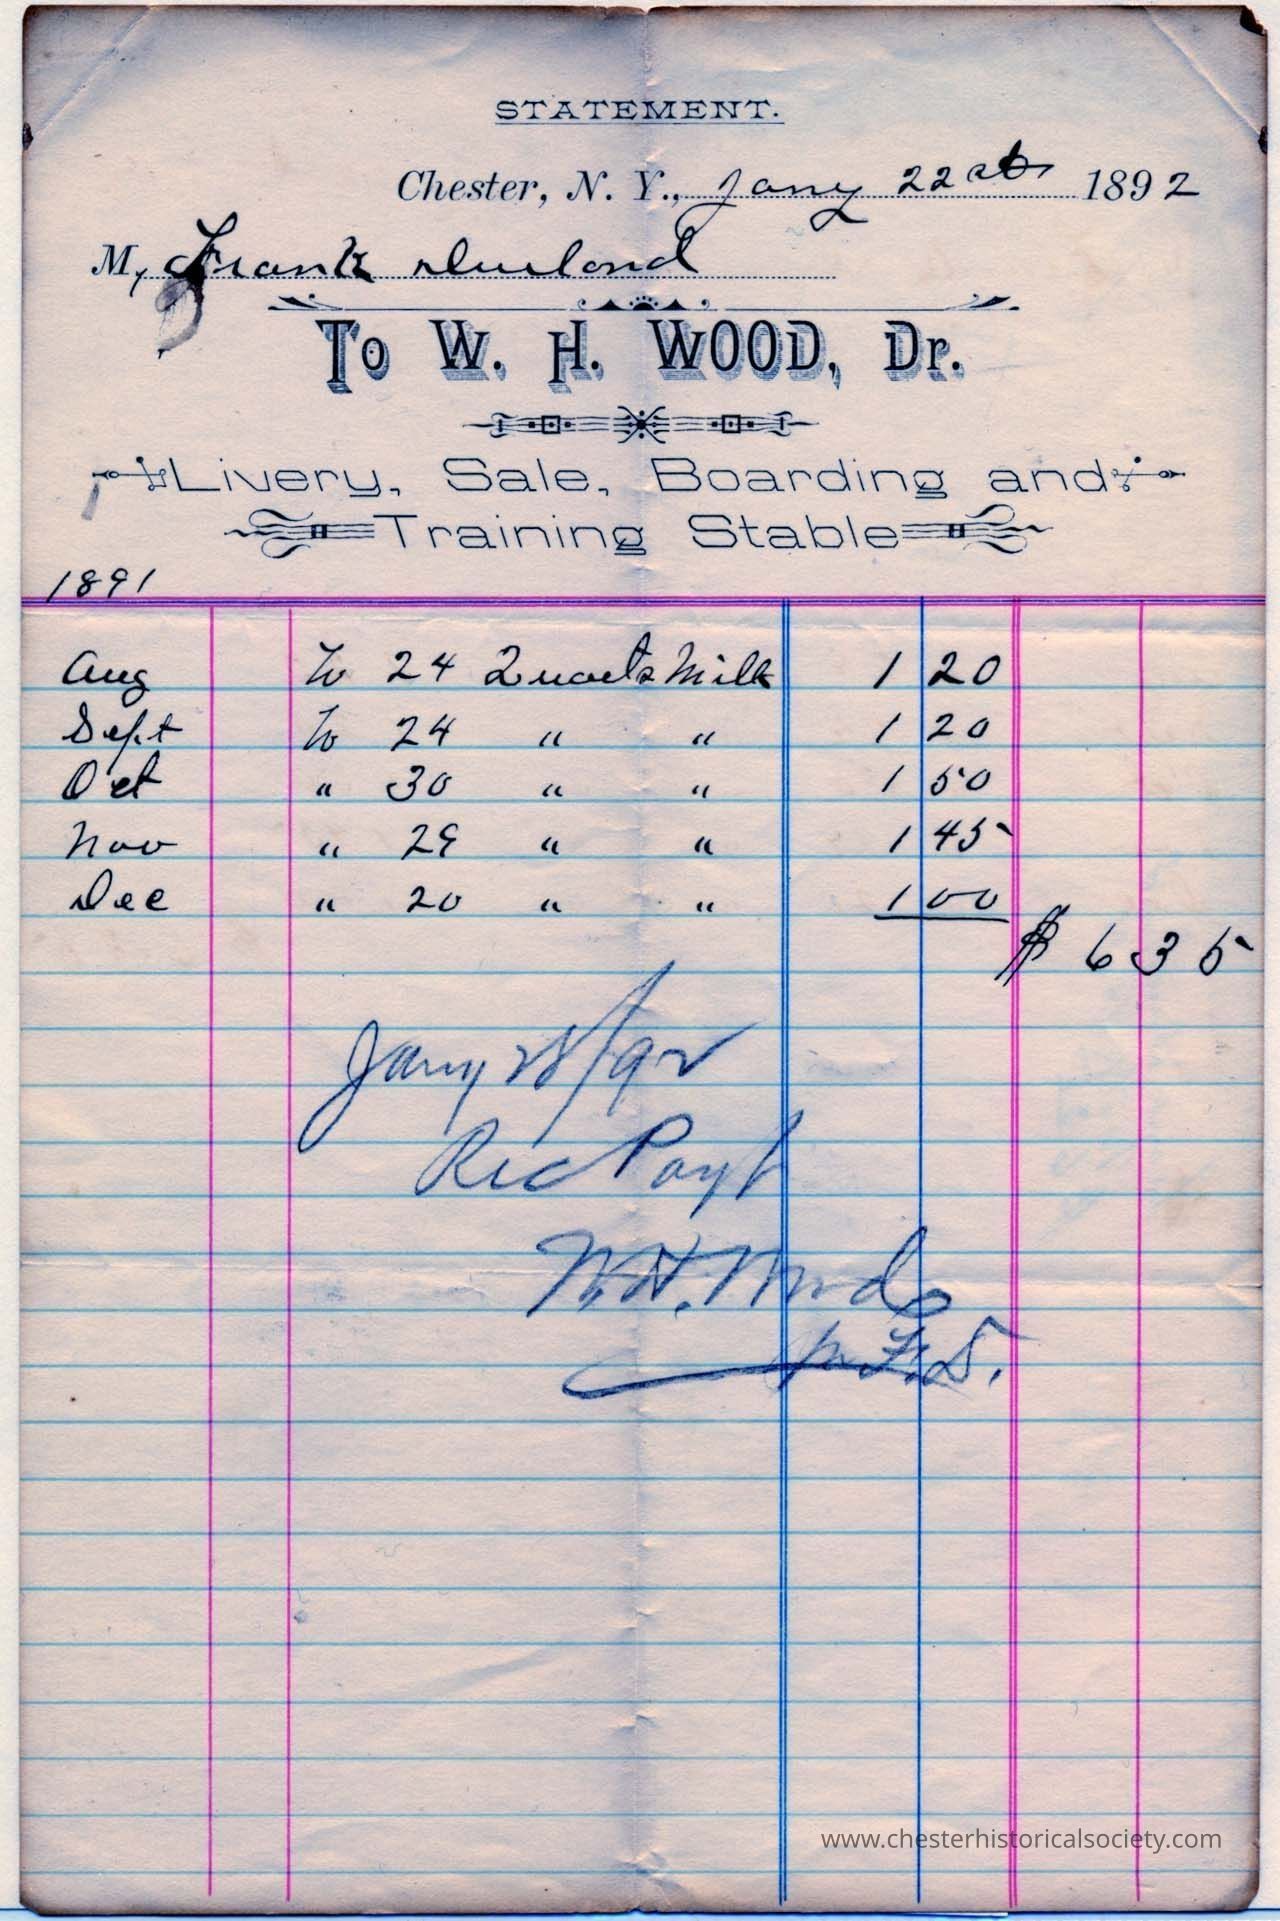 STATEMENT.
Chester, N. Y., Jany 22nd 1892
M, Frank Durland
To W. H. WOOD, Dr.
Livery, Sale, Boarding and
Training Stable
1891
Aug To 24 Quarts Milk 1 20
Sept To 24 " " 1 20
Oct " 30 " " 1 50
Nov " 29 " " 1 45
Dec " 20 " " 1 00
$ 6 35
Jany 28/92
Rec Payt
W. H. Wood
F. D.
www.chesterhistoricalsociety.com